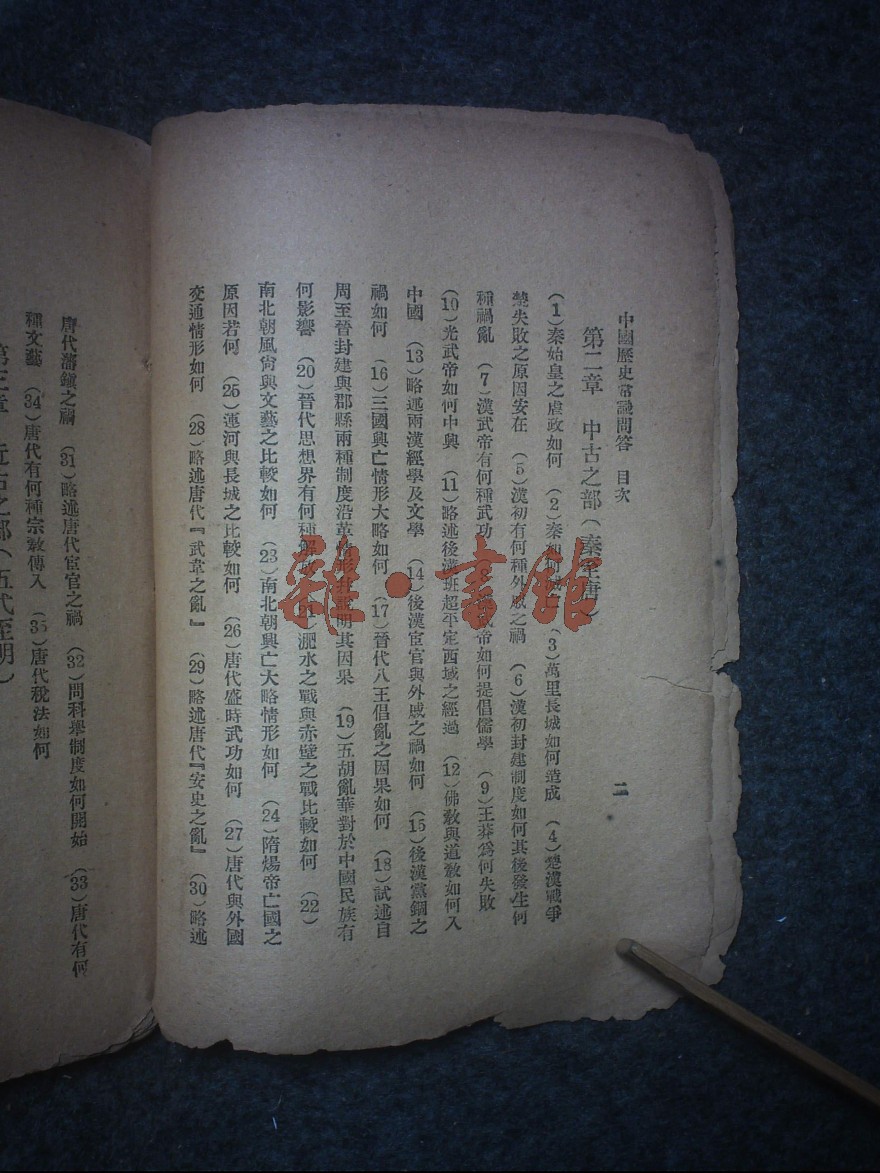 中國歷史常識問答 目次
二
第二章 中古之部(秦至唐)
(1)秦始皇之虐政如何 (2)秦如何滅亡 (3)萬里長城如何造成 (4)楚漢戰爭
楚失敗之原因安在 (5)漢初有何種外戚之禍 (6)漢初封建制度如何其後發生何
種禍亂 (7)漢武帝有何種武功 (8)漢武帝如何提倡儒學 (9)王莽爲何失敗
(10)光武帝如何中興 (11)略述後漢班超平定西域之經過 (12)佛敎與道敎如何入
中國 (13)略述兩漢經學及文學 (14)後漢宦官與外戚之禍如何 (15)後漢黨錮之
禍如何 (16)三國興亡情形大略如何 (17)晉代八王倡亂之因果如何 (18)試述自
周至晉封建與郡縣兩種制度沿革情形幷說明其因果 (19)五胡亂華對於中國民族有
何影響 (20)晉代思想界有何種解放 (21)淝水之戰與赤壁之戰比較如何 (22)
南北朝風尙與文藝之比較如何 (23)南北朝興亡大略情形如何 (24)隋煬帝亡國之
原因若何 (25)運河與長城之比較如何 (26)唐代盛時武功如何 (27)唐代與外國
交通情形如何 (28)略述唐代『武韋之亂』 (29)略述唐代『安史之亂』 (30)略述
唐代藩鎭之禍 (31)略述唐代宦官之禍 (32)問科舉制度如何開始 (33)唐代有何
種文藝 (34)唐代有何種宗敎傳入 (35)唐代稅法如何
第三章 近古之部(五代至明)
雜·書館